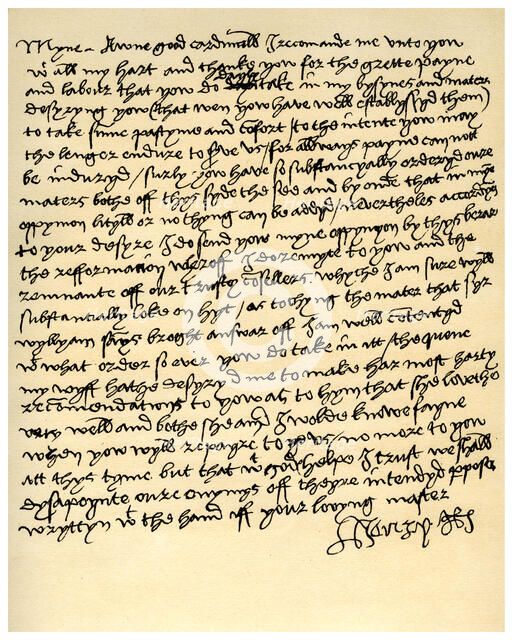 Myne Awne good cardinall I recomande me unto yow
wt all my hart and thanke yow for the grette payne
and labour that yow do dayly take in my bysynes and maters
desyryng yow (that wen yow have well establyssyd them)
to take summe pastyme and cofort /to the intente yow may
the lenger endure to serve us /for allways payne can nott
be induryd /surly yow have so substancyally orderyd oure
maters bothe off thys syde the see and byonde that in myne
oppynion lityll or no thyng can be addyd /nevertheles accordyng
to your desyre I do send yow myne oppynyon by thys berar
the refformation wheroff I do remytte to yow and the
remnante off our trusty cosellers whyche I am sure wyll
substantially loke on hyt /as tochyng the mater that syr
wyllyam says broght answar off I am well contentyd
wt what order so ever yow do take in itt /the quene
my wyff hathe desyryd me to make har most harty
recommendations to yow as to hym that she lovethe
very well and bothe she and I wolde knowe fayne
when yow wyll repayre to us /no more to yow
att thys tyme but that wt gods helpe I trust we shall
dysapoynte oure enymys off theyre intendyd purpose
wryttyn wt the hand off your lovyng master
Henry R